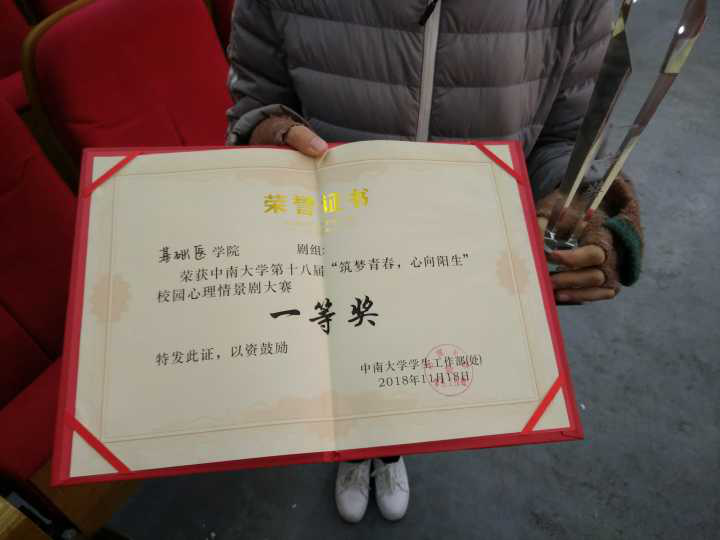 荣誉证书
基础医学院 剧组:
荣获中南大学第十八届“筑梦青春，心向阳生”
校园心理情景剧大赛
一等奖
特发此证，以资鼓励
中南大学学生工作部(处)
2018年11月18日